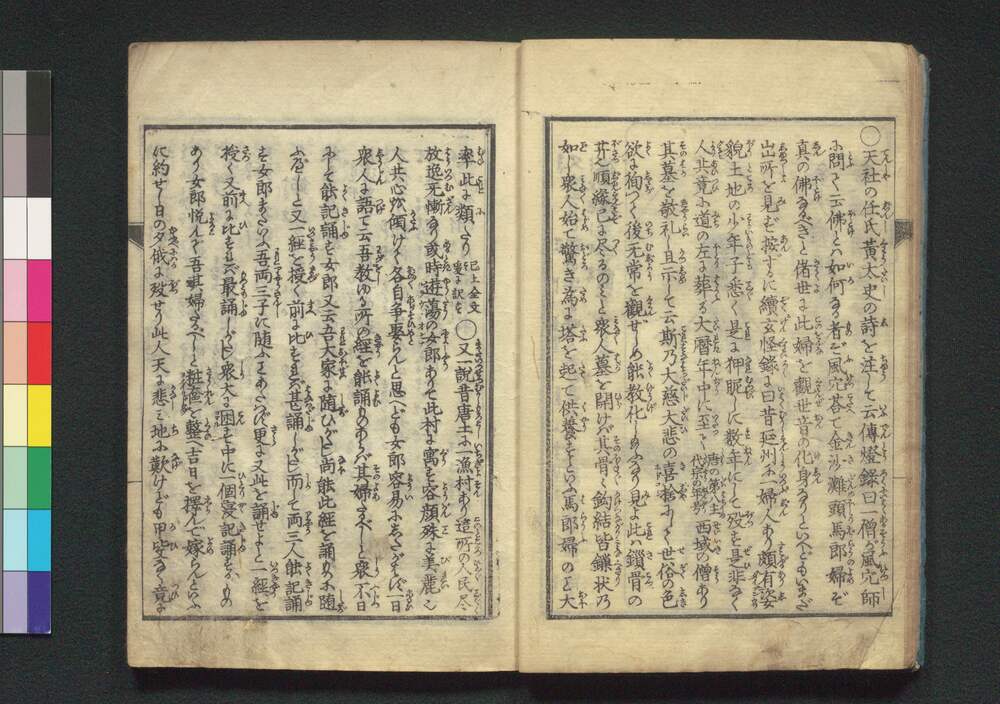 〇天社の任氏黄太史の詩を注して云傳燈録曰一僧風穴師
に問て云佛とハ如何る者ぞ風穴荅て金沙灘頭馬郎婦ぞ
真の佛なるべきと偖世に此婦を觀世音の化身なりといへどもいまだ
出所を見ず按するに續玄怪録に曰昔延州に一婦人あり頗有姿
貌土地の少年子悉く是に狎昵しに数年にして歿す是非なく
人共竟に道の左に葬る大暦年中に至て唐の第十一主代宗の年号西域の僧あり
其墓を敬礼し且示して云斯乃大慈大悲の喜捨にして世俗の色
欲に徇つて後无常を觀ぜしめ能教化しありなり見よ此ハ鎖骨の
菩薩順縁已に尽るのミと衆人墓を開けバ其骨く鈎結皆鏁状乃
如し衆人始て驚き為に塔を起て供養すといへり馬郎婦のこと大
率此に類したり已上全文〇又一說昔唐土に一漁村あり這所の人民尽
放逸无慚なり或時遊蕩の女郎ありて此村に寓す容顔殊に美麗し
人共心を傾けて各自争娶らんと思へども女郎容易にしたがハず一日
衆人に語て云吾教ゆる所の経を能誦ものあらバ其婦となるべしと衆不日
にして能記誦す女郎又云吾大家に随ひがたし尚能此経を誦ものに随
ふべしと又一經を授く前に比すれバ甚誦しがたし而て両三人能記誦
す女郎またいふ吾両三子に随ふことあたハず更に又此を誦せよと一經を
授く又前に比すれバ最誦しがたし衆大に困す中に一個寝記誦する
あり女郎悦んで吾祺婦となるべしと粧奩を整へ吉日を擇んで嫁らんといふ
に約せし日の夕俄に歿せり此人天に悲ミ地に歎けども甲斐なく竟に